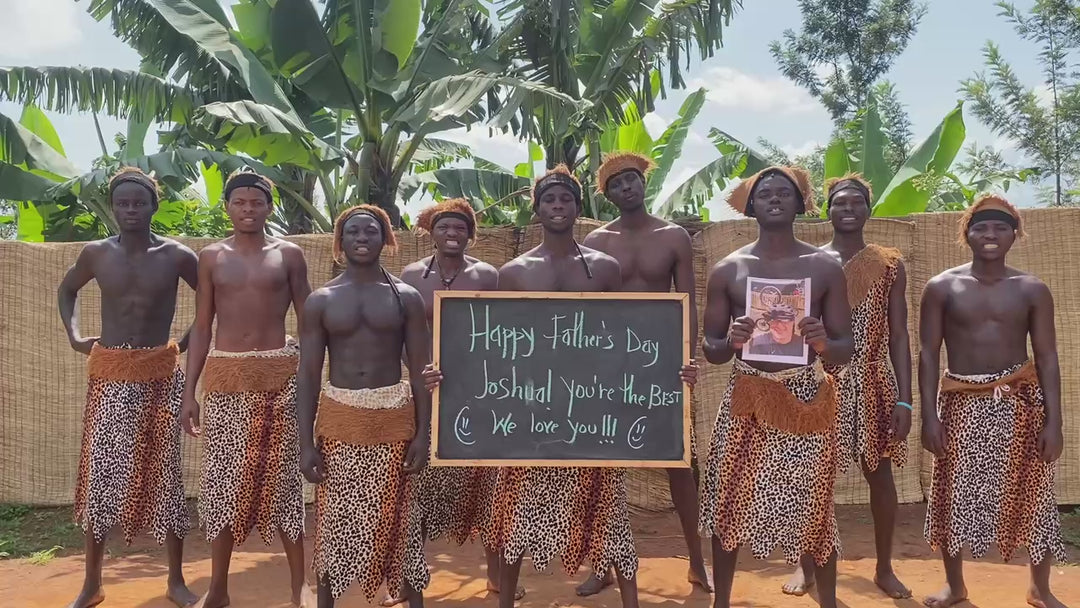 Happy Father's Day
Joshua! you're the BEST
We love you!!!